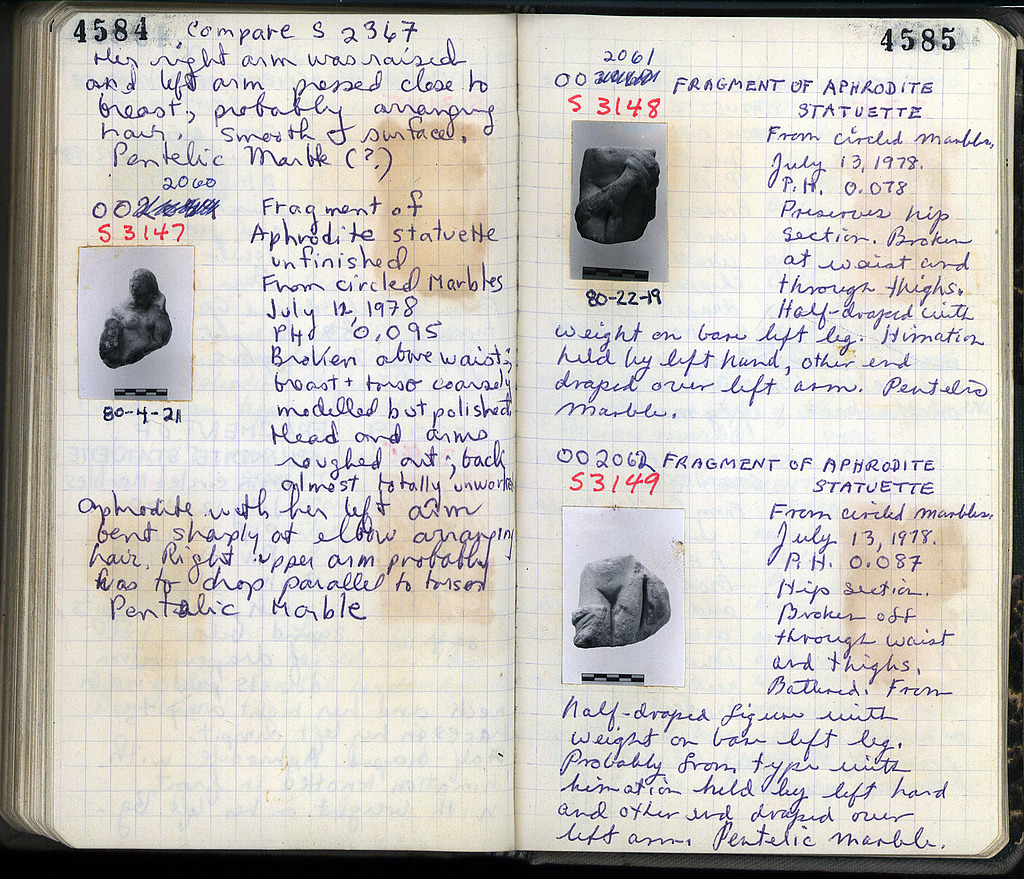 4584 Compare S 2367
Her right arm was raised
and left arm pressed close to
breast, probably arranging
hair. Smooth surface.
Pentelic Marble (?)
2060
00
S 3147
Fragment of
Aphrodite statuette
unfinished
From circled Marbles
July 12, 1978
PH 0.095
Broken above waist;
breast + torso coarsely
modelled but polished
Head and arms
roughed out; back
almost totally unworked
80-4-21
Aphrodite with her left arm
bent sharply at elbow arranging
hair. Right upper arm probably
was to drop parallel to torso
Pentelic Marble
4585
2061
00 FRAGMENT OF APHRODITE
S 3148 STATUETTE
From circled marbles.
July 13, 1978.
P.H. 0.078
Preserves hip
section. Broken
at waist and
through thighs.
Half-draped with
80-22-19
weight on bare left leg. Himation
held by left hand, other end
draped over left arm. Pentelic
marble.
002062 FRAGMENT OF APHRODITE
S3149 STATUETTE
From circled marbles.
July 13, 1978.
P.H. 0.087
Hip section.
Broken off
through waist
and thighs.
Battered. From
half-draped figure with
weight on bare left leg.
Probably from type with
himation held by left hand
and other end draped over
left arm. Pentelic marble.